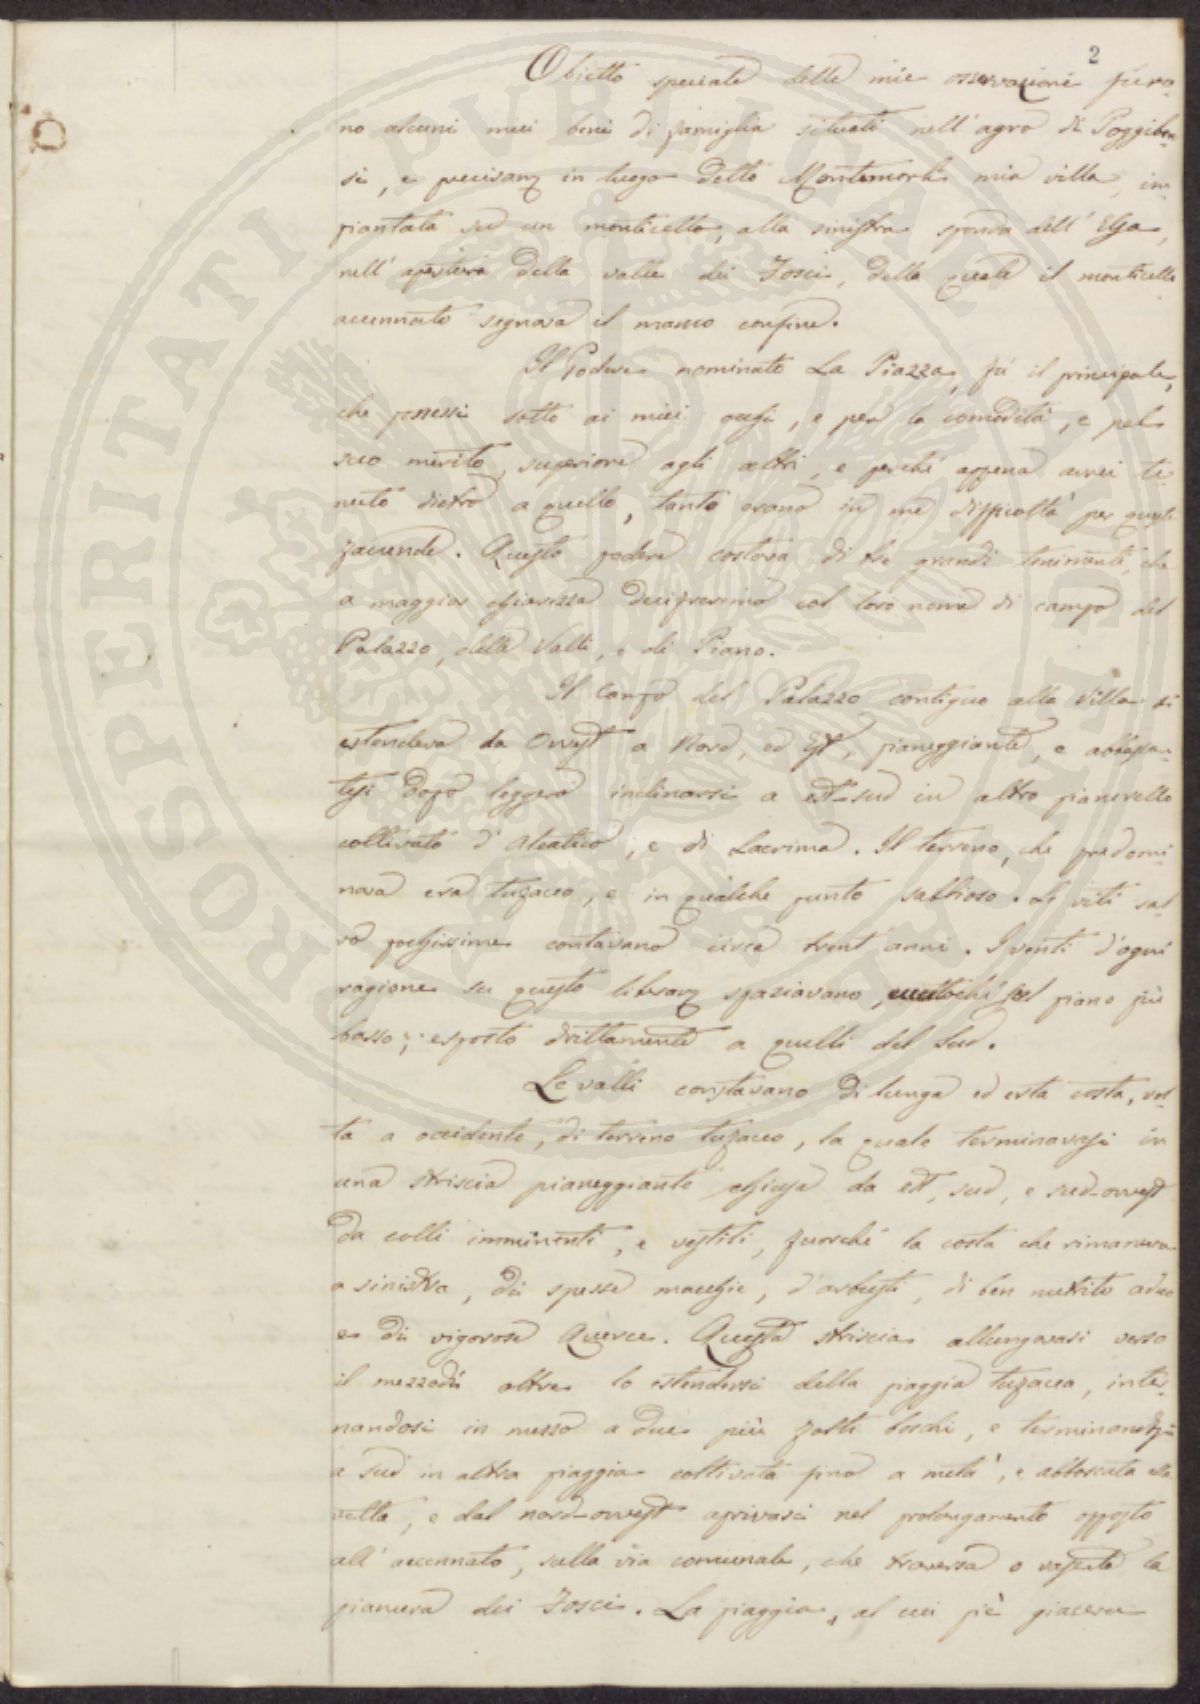 2
Obietto speciale delle mie osservazioni furo-
no alcuni miei beni di famiglia situati nell'agro di Poggibon-
si, e precisam in luogo detto Montemorli mia villa, im-
piantata su un monticello, alla sinistra sponda dell'Elsa,
nell'apertura della valle dei Fosci, della quale il monticello
accennato segnava il manco confine.
Il Podere nominato La Piazza, fu il principale,
che presessi sotto ai miei occhi, e per la comodità, e pel
suo merito, superiore agli altri, e perché appena avrei te-
nuto dietro a quello, tanto erano in me difficoltà per queste
faccende. Questo podere costava di tre grandi tenimenti, che
a maggior chiarezza decifreremo col loro nome di campo del
Palazzo, delle Valli, e di Piano.
Il Campo del Palazzo contiguo alla Villa si
estendeva da Ovest a Nord, ed Est, pianeggiante, e abbassa-
tosi dopo leggero inclinarsi a est-sud in altro pianerello
coltivato d'Aleatico, e di Lacrima. Il terreno, che predomi-
nava era tufaceo, e in qualche punto sabbioso. Le viti sal-
vo pochissime contavano circa trent'anni. I venti d'ogni
ragione su questo liberam spaziavano, eccettoché sul piano più
basso, esposto drittamente a quelli del Sud.
Le valli constavano di lunga ed erta costa, vol-
ta a occidente, di terreno tufaceo, la quale terminavasi in
una striscia pianeggiante chiusa da est, sud, e sud-ovest
da colli imminenti, e vestiti, fuorché la costa che rimaneva
a sinistra, di spesse macchie, d'arbusti, di ben nutrite
e di vigorose Querce. Questa striscia allungavasi verso
il mezzodì oltre lo estendersi della piaggia tufacea, inter-
nandosi in mezzo a due più folti boschi, e terminando
a sud in altra piaggia coltivata fino a metà, e abboscata alla
vetta, e dal nord-ovest aprivasi nel prolungamento opposto
all'accennato, sulla via comunale, che traversa la
pianura dei Fosci. La piaggia, al cui piè giaceva